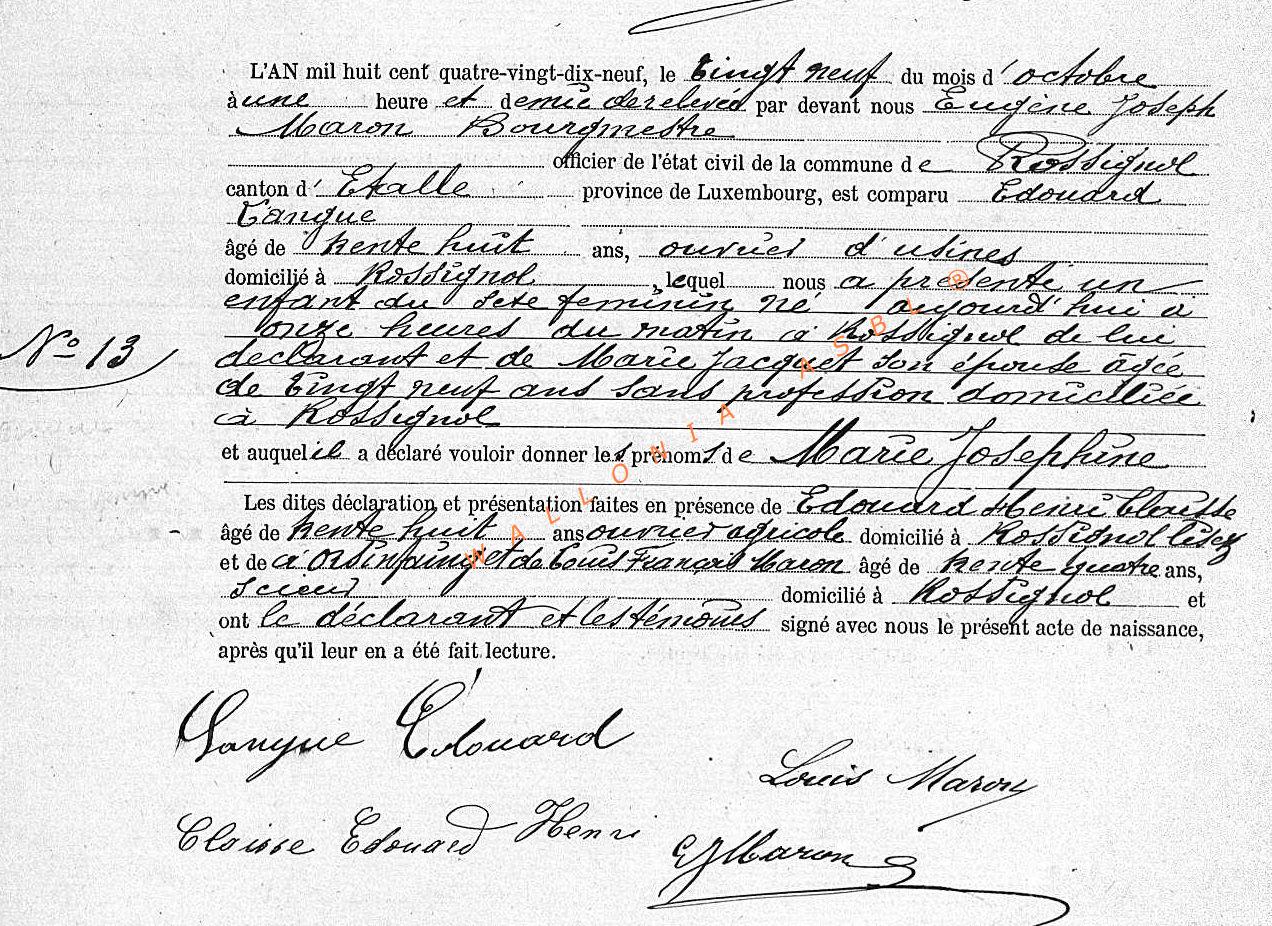 L'AN mil huit cent quatre-vingt-dix-neuf, le Vingt neuf du mois d'octobre
à une heure et demie de relevée par devant nous Eugène Joseph
Maron Bourgmestre
officier de l'état civil de la commune de Rossignol
canton d'Etalle province de Luxembourg, est comparu Edouard
Tangue
âgé de trente huit ans, ouvrier d'usines
domicilié à Rossignol, lequel nous a présenté un
enfant du sexe feminin né aujourd'hui à
onze heures du matin à Rossignol de lui
N° 13
declarant et de Marie Jacquet son épouse âgée
de Vingt neuf ans sans profession domiciliée
à Rossignol
et auquel il a déclaré vouloir donner les prénoms de Marie Josephine
Les dites déclaration et présentation faites en présence de Edouard Henri Claisse
âgé de trente huit ans ouvrier agricole domicilié à Rossignol lisez
et de à Orsinfaing et de Louis François Maron âgé de trente quatre ans,
scieur domicilié à Rossignol et
ont le déclarant et les témoins signé avec nous le présent acte de naissance,
après qu'il leur en a été fait lecture.
Tangue Edouard
Louis Maron
Claisse Edouard Henri
EJMaron
WALLONIA ASBL ®